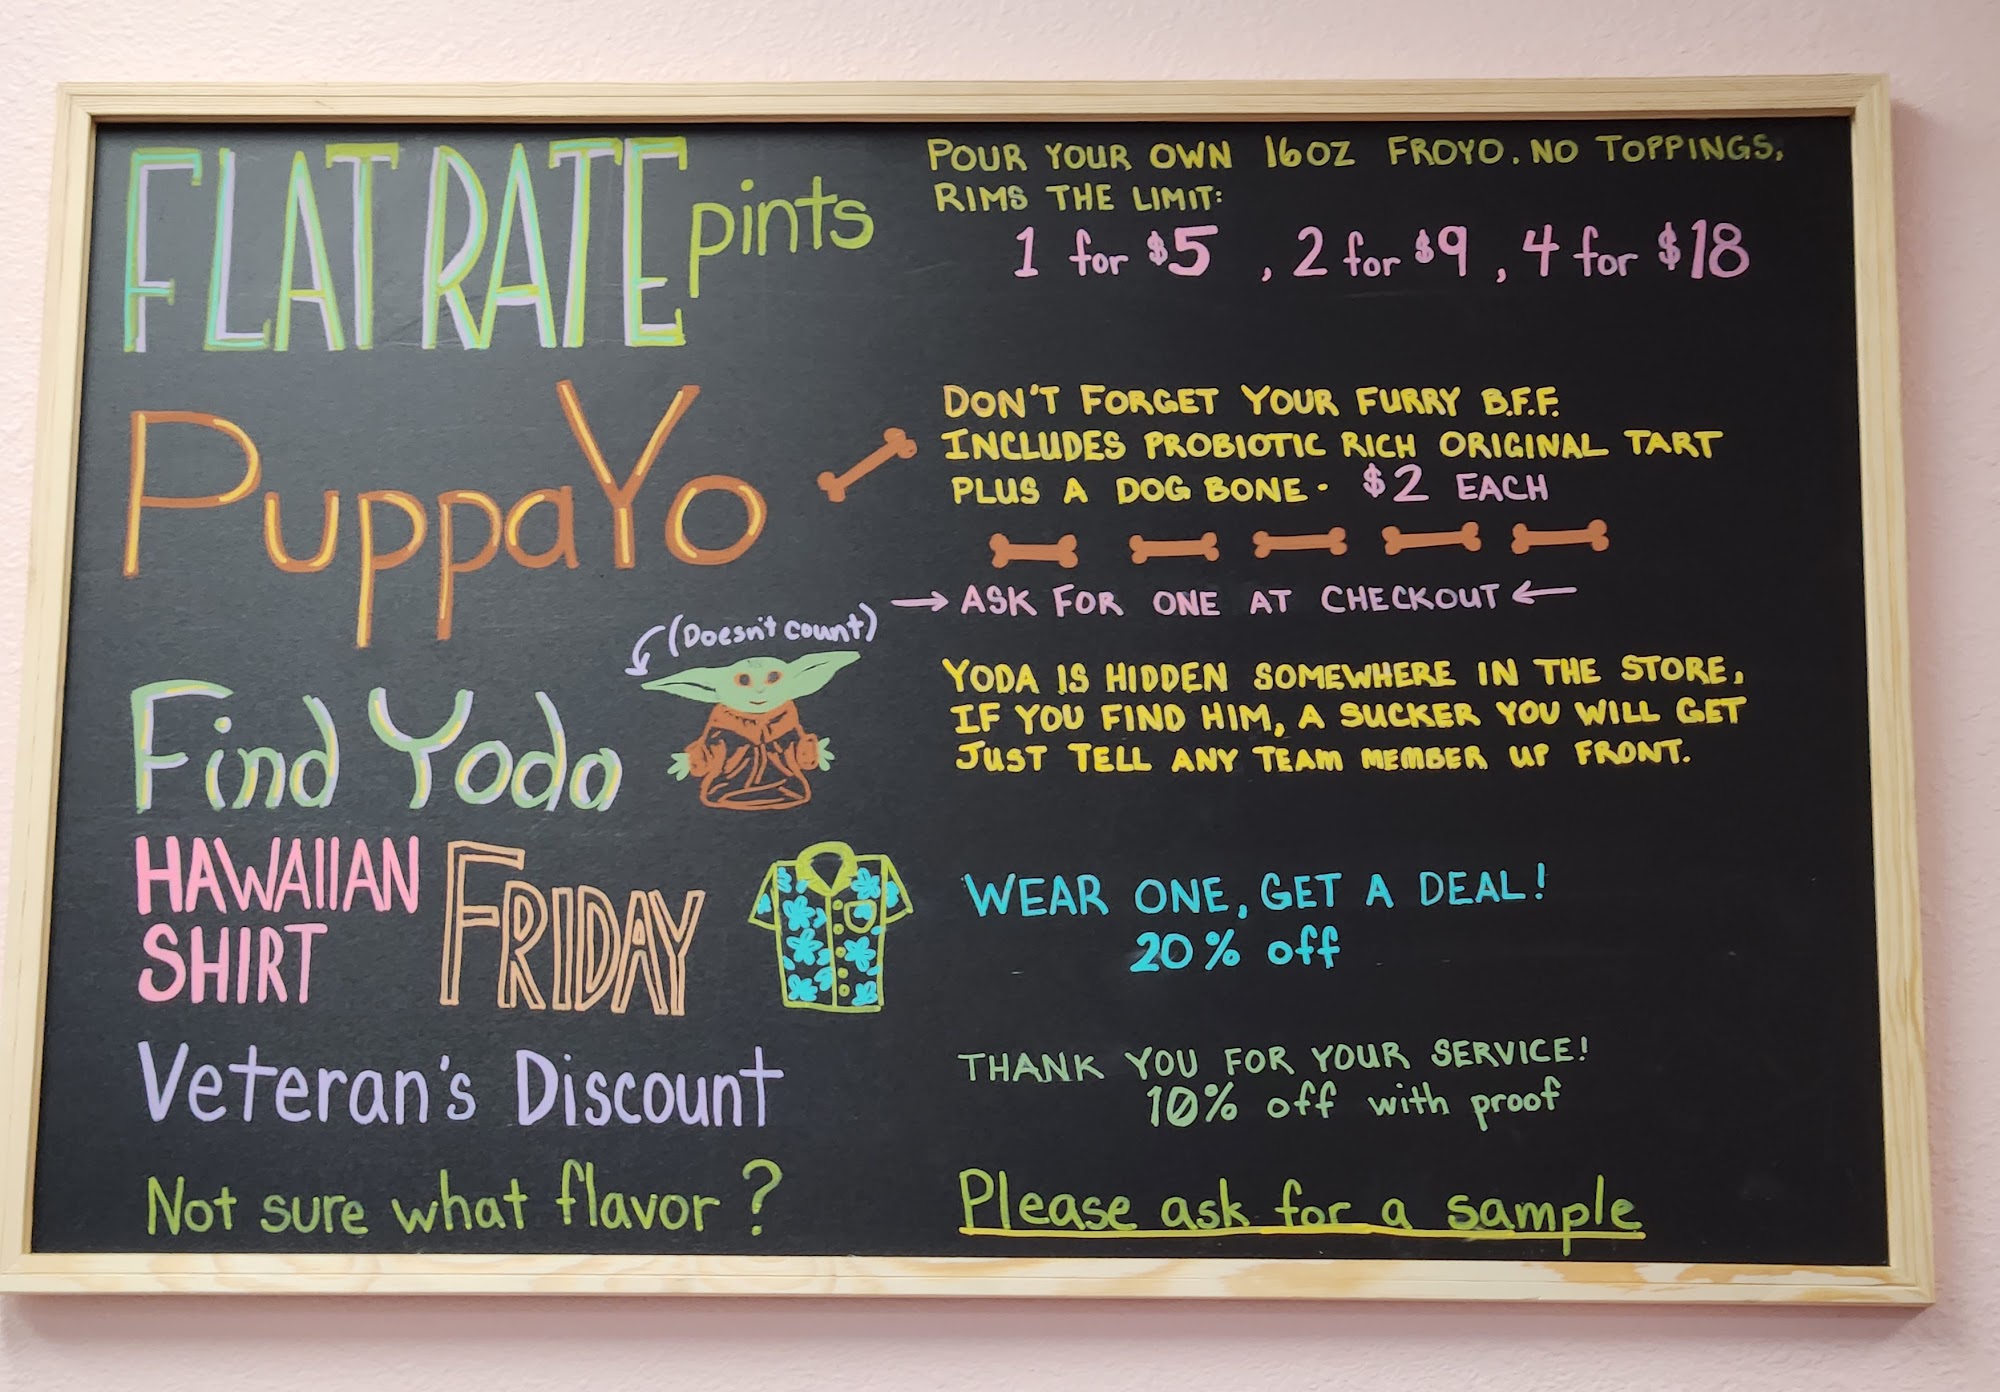 FLAT RATE pints
POUR YOUR OWN 16OZ FROYO. NO TOPPINGS,
RIMS THE LIMIT:
1 for $5 , 2 for $9 , 4 for $18
PuppaYo
DON'T FORGET YOUR FURRY B.F.F.
INCLUDES PROBIOTIC RICH ORIGINAL TART
PLUS A DOG BONE. $2 EACH
→ ASK FOR ONE AT CHECKOUT ←
Find Yoda
(Doesn't count)
YODA IS HIDDEN SOMEWHERE IN THE STORE,
IF YOU FIND HIM, A SUCKER YOU WILL GET
JUST TELL ANY TEAM MEMBER UP FRONT.
HAWAIIAN
SHIRT
FRIDAY
WEAR ONE, GET A DEAL!
20% off
Veteran's Discount
THANK YOU FOR YOUR SERVICE!
10% off with proof
Not sure what flavor?
Please ask for a sample